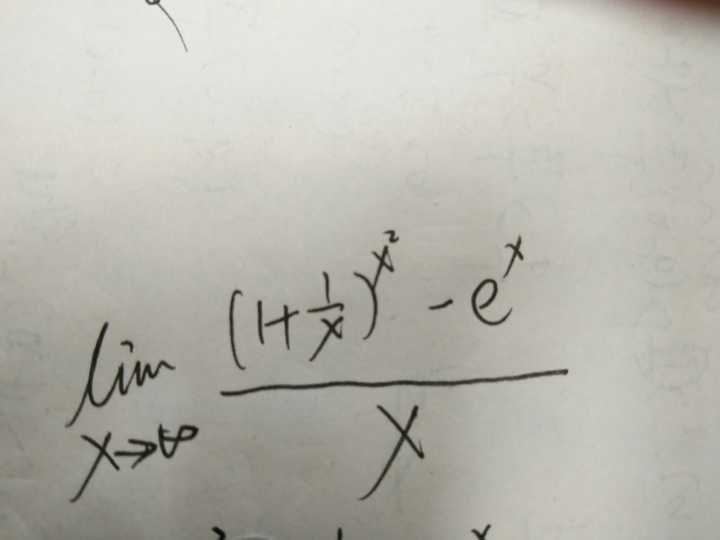 lim x→∞ ((1+1/x)^{x^2} - e^x)/x